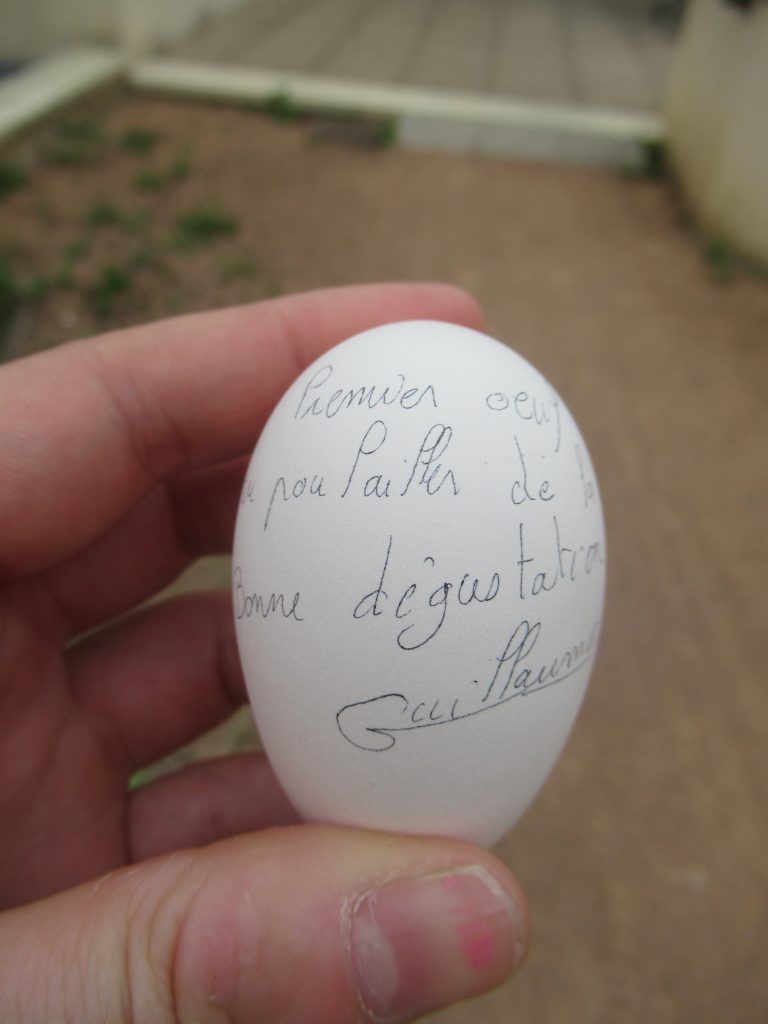 Premier oeuf
du poulailler de la
Bonne dégustation
Guillaume